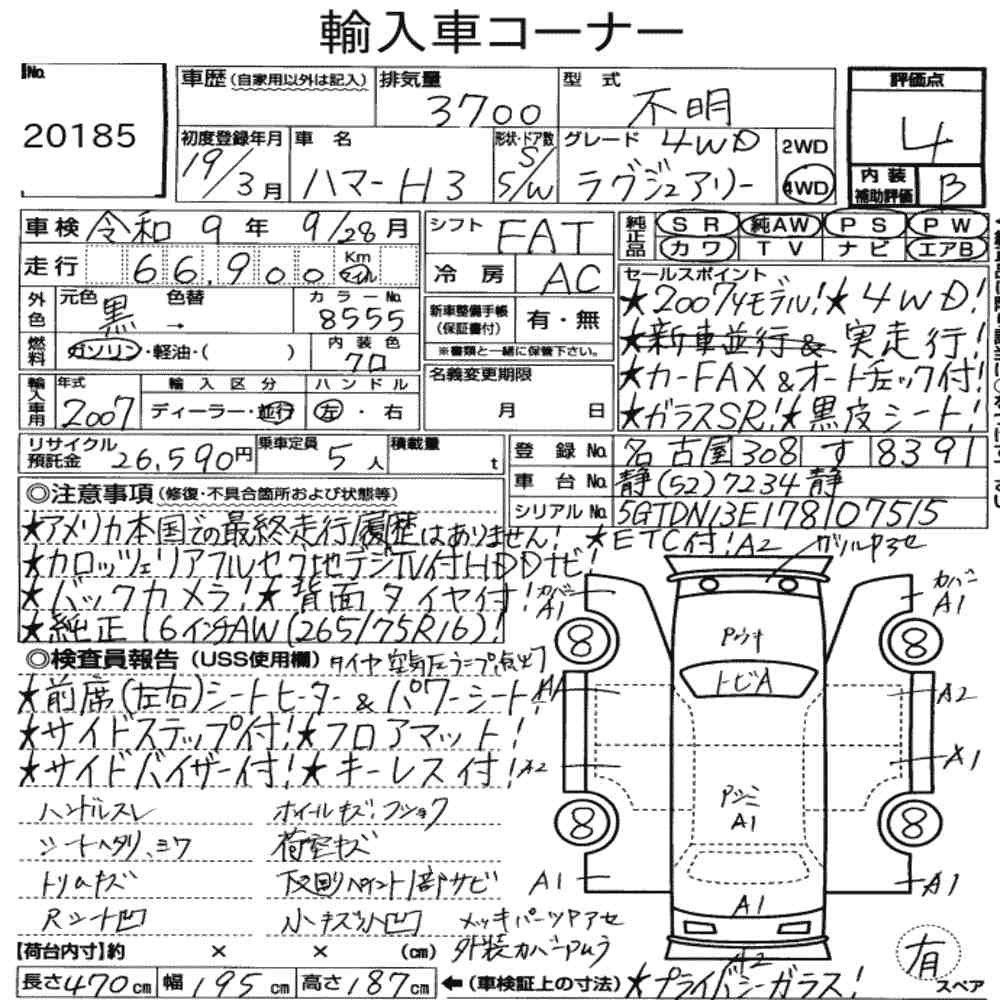 輸入車コーナー
No. 20185
車歴 (自家用以外は記入) 排気量 3700 型式 不明
初度登録年月 19/3月 車名 ハマーH3 形状・ドア数 5/S/W グレード 4WD ラグジュアリー 2WD 4WD
評価点 4
内装補助評価 B
車検 令和 9年 9/28月 シフト FAT
走行 66,900 Km マイル 冷房 AC
外色 元色 黒 色替 → カラーNo. 8555
新車整備手帳 (保証書付) 有・無
※書類と一緒に保管下さい。
燃料 ガソリン・軽油・( ) 内装色 クロ
輸入車用 年式 2007 輸入区分 ディーラー・並行 ハンドル 左・右
名義変更期限 月 日
リサイクル預託金 26,590円 乗車定員 5人 積載量 t
純正品 SR 純AW PS PW
カワ TV ナビ エアB
セールスポイント
★2007yモデル!★4WD!
★新車並行& 実走行!
★カーFAX&オートチェック付!
★ガラスSR!★黒皮シート!
登録No. 名古屋 308 す 8391
車台No. 静(52)7234静
シリアルNo. 5GTDN13E178107515
◎注意事項 (修復・不具合箇所および状態等)
★アメリカ本国での最終走行履歴はありません! ★ETC付!
★カロッツェリアフルセグ地デジTV付HDDナビ!
★バックカメラ!★背面タイヤ付!
★純正16インチAW(265/75R16)!
◎検査員報告 (USS使用欄) タイヤ空気圧ランプ点灯
★前席(左右)シートヒーター&パワーシート!
★サイドステップ付!★フロアマット!
★サイドバイザー付!★キーレス付!
ハンドルスレ ホイールキズ・フショク
シートヘタリ、シワ 荷室キズ
トリムキズ 下回りペイント1部サビ
Rシート凹 小キズ小凹 メッキパーツPアセ
外装カバーアムラ
A2 グリルPアセ
カバーA1 カバーA1
8 8
Pウキ
トビA
A2
A2 A1
Pシミ
A1
8 8
A1 A1
A1
A2
【荷台内寸】約 × × (cm)
長さ470cm 幅195cm 高さ187cm ←(車検証上の寸法) ★プライバシーガラス!
有 スペア